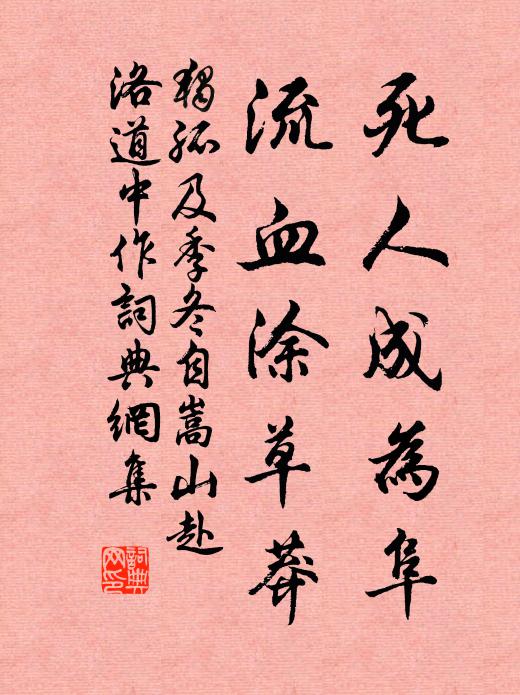 死人成為阜
流血涂草莽
獨孤及季冬自嵩山赴
洛道中作詞典網集
詞典
网印